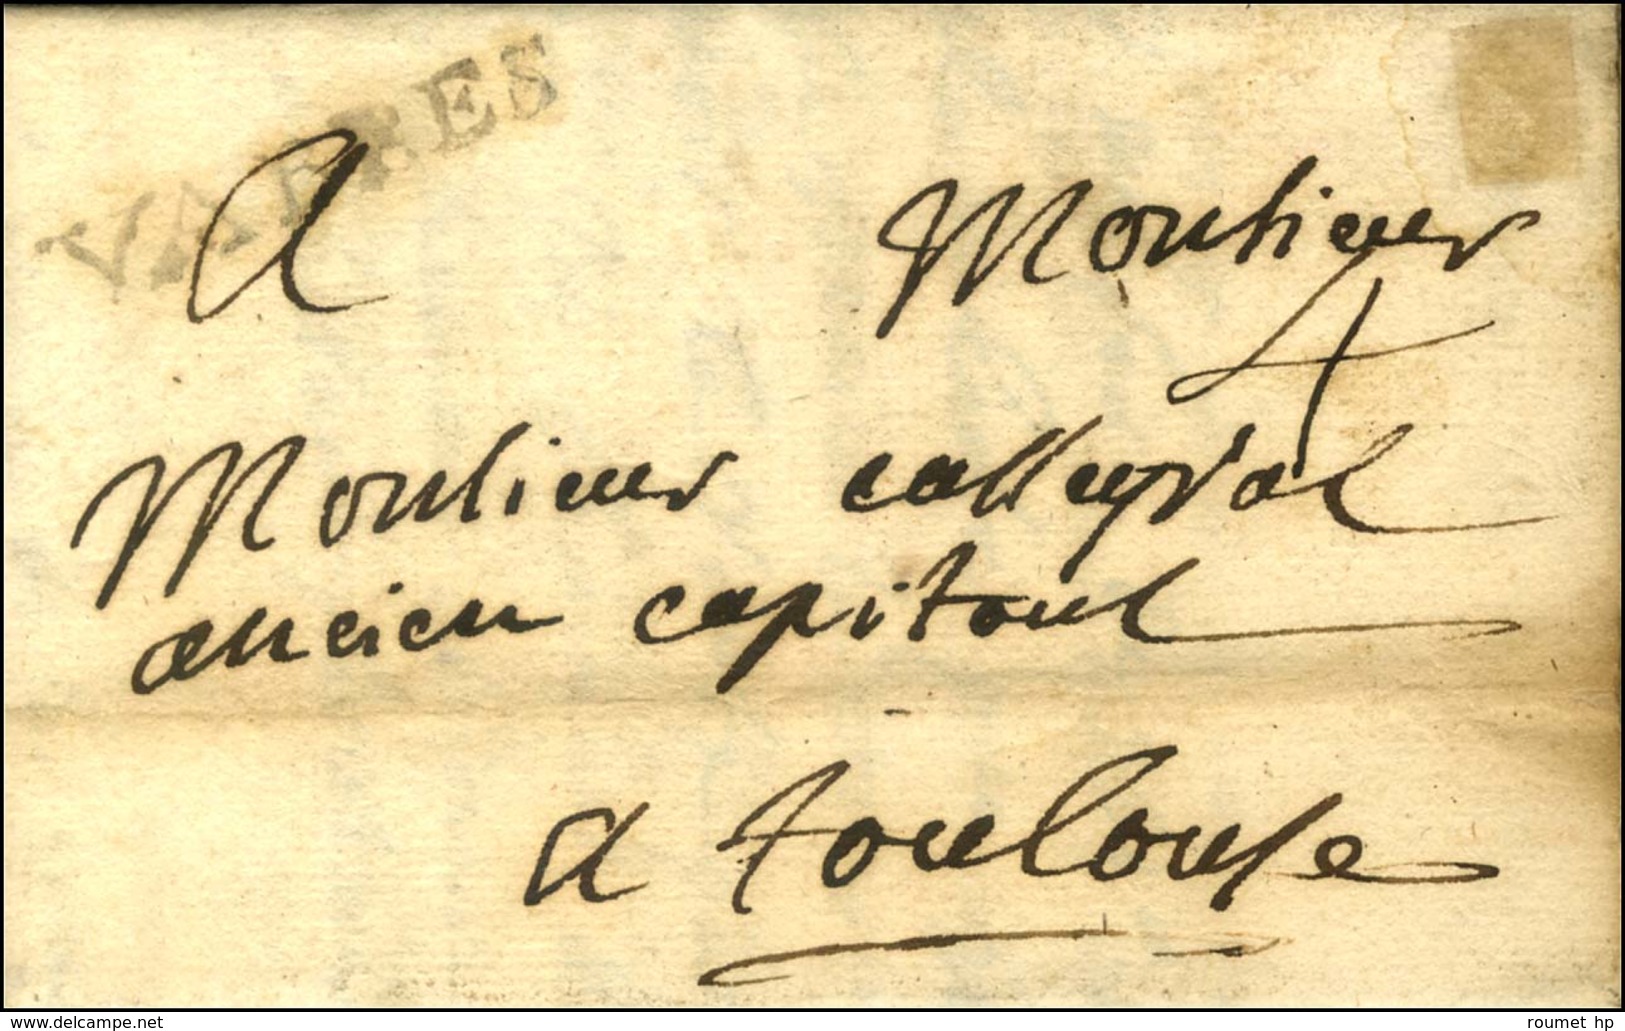 VABRES
A Monsieur
4
Monsieur
ancien capitoul
a toulouse
www.delcampe.net
roumet hp